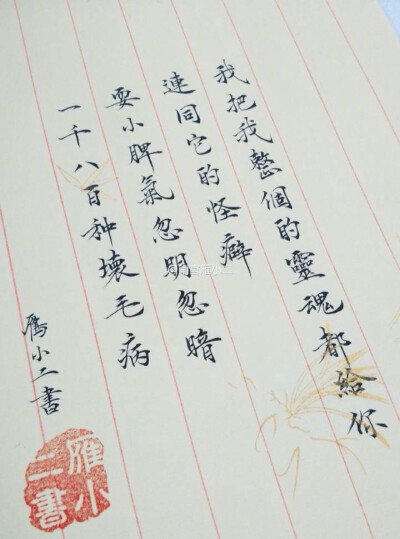 我把我整個的靈魂都給你
連同它的怪癖
耍小脾氣忽明忽暗
一千八百种壞毛病
鴈小二書
雁小二書